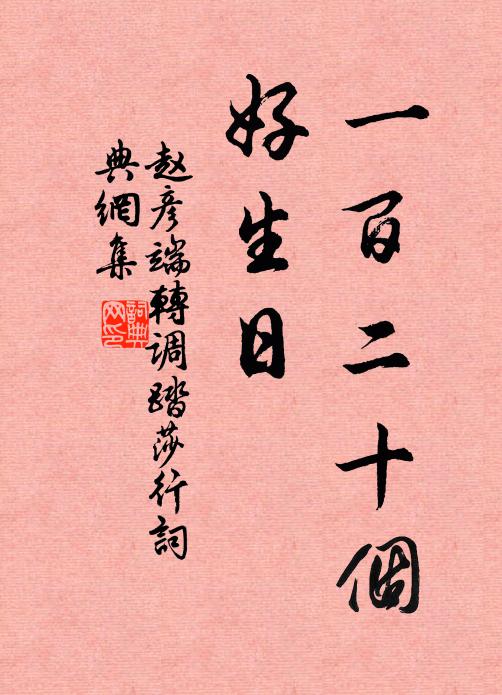 一百二十個
好生日
赵彦端轉調踏莎行詞
典網集
詞典
网印